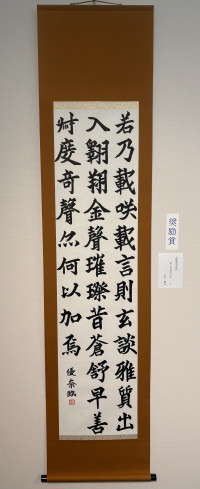 若乃載咲載言則玄談雅質出
入翱翔金聲璀璨昔蒼舒早善
叔度奇聲亦何以加焉
優奈臨
奨励賞